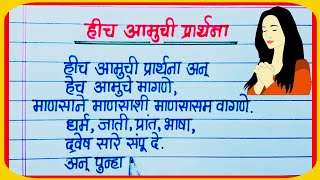 हीच आमुची प्रार्थना
हीच आमुची प्रार्थना अन्
हेच आमुचे मागणे,
माणसाने माणसाशी माणसासम वागणे.
धर्म, जाती, प्रांत, भाषा,
द्वेष सारे संपू दे.
अन् पुन्हा